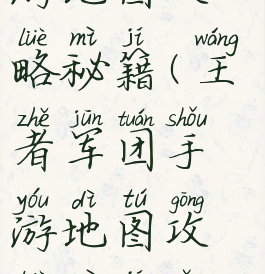 lüè mì jí wáng
略秘籍(王
zhě jūn tuán shǒu
者军团手
yóu dì tú gōng
游地图攻